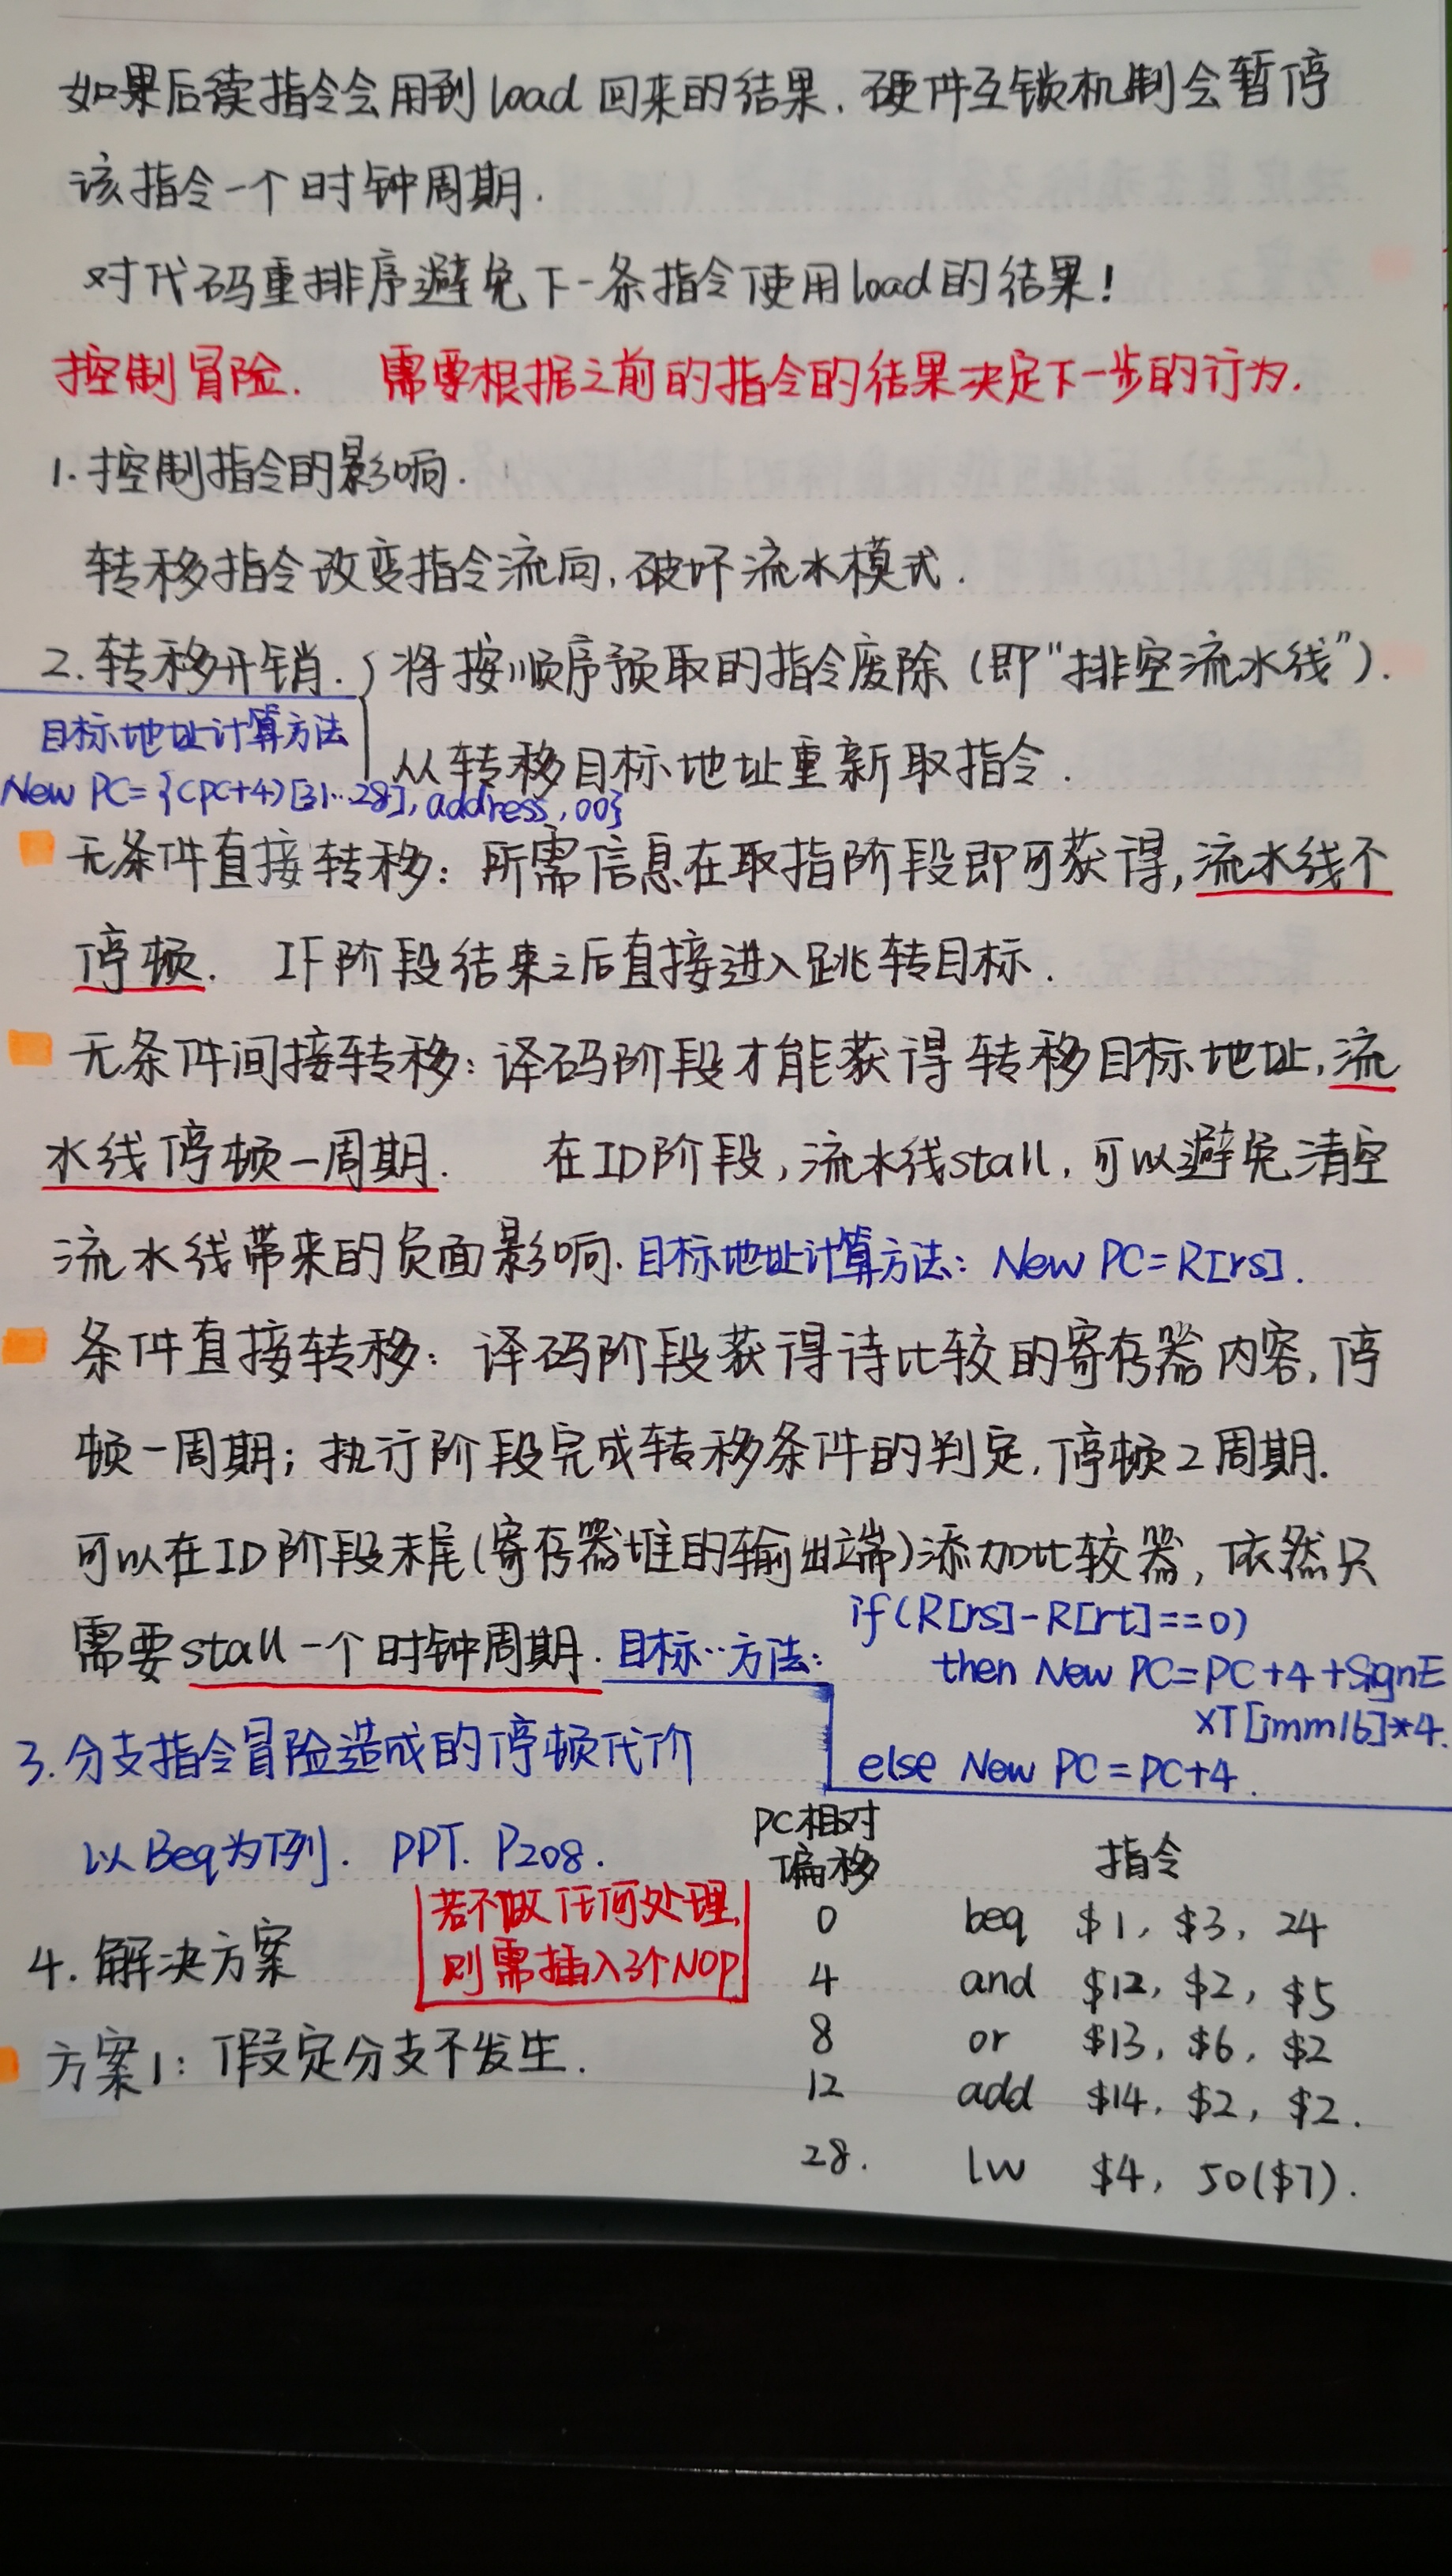 如果后续指令会用到load回来的结果，硬件互锁机制会暂停
该指令一个时钟周期.
对代码重排序避免下一条指令使用load的结果！
控制冒险. 需要根据之前的指令的结果决定下一步的行为.
1.控制指令的影响.
转移指令改变指令流向，破坏流水模式.
2.转移开销. 将按顺序预取的指令废除（即"排空流水线"）.
从转移目标地址重新取指令.
目标地址计算方法
New PC={(PC+4)[31..28], address, 00}
无条件直接转移：所需信息在取指阶段即可获得，流水线不
停顿. IF阶段结束之后直接进入跳转目标.
无条件间接转移：译码阶段才能获得转移目标地址，流
水线停顿一周期. 在ID阶段，流水线stall，可以避免清空
流水线带来的负面影响. 目标地址计算方法：New PC=R[rs].
条件直接转移：译码阶段获得待比较的寄存器内容，停
顿一周期；执行阶段完成转移条件的判定，停顿2周期.
可以在ID阶段末尾（寄存器堆的输出端）添加比较器，依然只
需要stall一个时钟周期. 目标..方法：
if(R[rs]-R[rt]==0)
then New PC=PC+4+SignE
xT[imm16]*4.
else New PC=PC+4.
3.分支指令冒险造成的停顿代价
以Beq为例. PPT. P208.
4.解决方案
若不做任何处理，
则需插入3个NOP
方案1：假定分支不发生.
PC相对
偏移 指令
0 beq $1, $3, 24
4 and $12, $2, $5
8 or $13, $6, $2
12 add $14, $2, $2.
28. lw $4, 50($7).